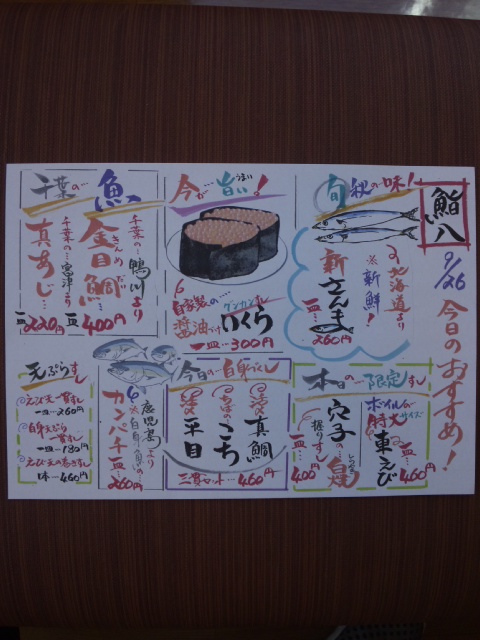 鮨八
9/26
今日のおすすめ!
旬 秋の味!
北海道より
※新鮮!
新さんま
一皿…260円
今が…旨い!
うまい
自家製の…
醤油づけ
グンカンすし
いくら
一皿…300円
千葉の…魚
千葉の…鴨川より
きんめだい
金目鯛…
一皿400円
千葉の…富津より
真あじ…
一皿220円
本日の…限定すし
ボイル
特大サイズ
車えび
一皿…460円
穴子の
握りすし
一皿…400円
今日の…白身づくし
真鯛
こち
平目
三貫セット…460円
鹿児島より
※白身魚の…
カンパチ
一皿…260円
天ぷらすし
えび天一貫すし
一皿…260円
白身天ぷら
一貫すし
一皿…180円
えび天の巻きすし
一本…460円